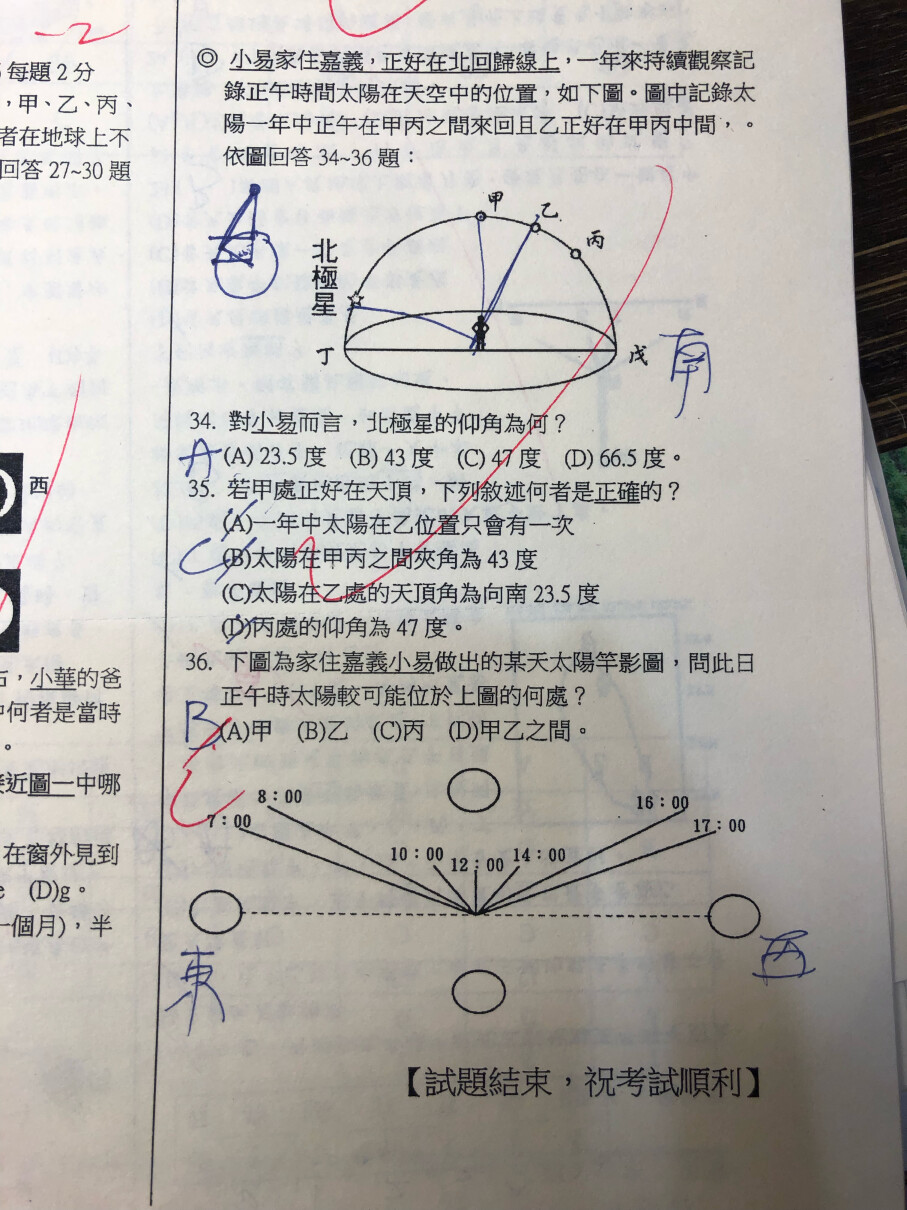 -2
每題2分
,甲、乙、丙、
者在地球上不
回答 27~30 題
西
右,小華的爸
何者是當時
。
接近圖一中哪
在窗外見到
e (D)g。
一個月),半
◎ 小易家住嘉義,正好在北回歸線上,一年來持續觀察記
錄正午時間太陽在天空中的位置,如下圖。圖中記錄太
陽一年中正午在甲丙之間來回且乙正好在甲丙中間,。
依圖回答 34~36 題:
甲
乙
丙
北極星
丁
戊
南
34. 對小易而言,北極星的仰角為何?
A
(A) 23.5 度 (B) 43 度 (C) 47 度 (D) 66.5 度。
35. 若甲處正好在天頂,下列敘述何者是正確的?
(A)一年中太陽在乙位置只會有一次
C
(B)太陽在甲丙之間夾角為 43 度
(C)太陽在乙處的天頂角為向南 23.5 度
(D)丙處的仰角為 47 度。
36. 下圖為家住嘉義小易做出的某天太陽竿影圖,問此日
正午時太陽較可能位於上圖的何處?
B
(A)甲 (B)乙 (C)丙 (D)甲乙之間。
8:00
16:00
7:00
17:00
10:00
12:00
14:00
東
西
【試題結束,祝考試順利】